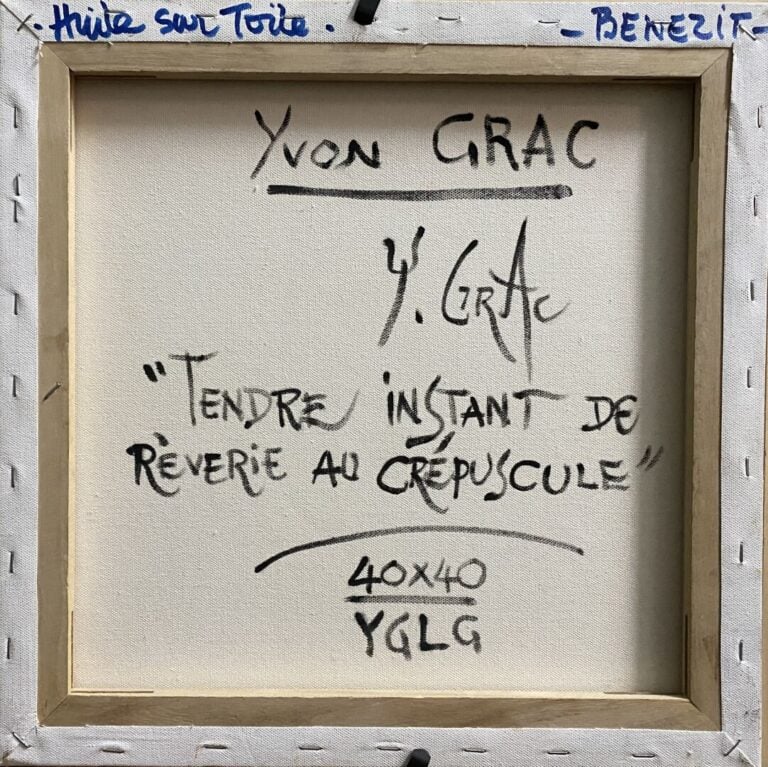 . Huile sur Toile .
- BENEZIT -
YVON GRAC
Y. GRAC
"TENDRE INSTANT DE
RÈVERIE AU CRÉPUSCULE"
40x40
YGLG